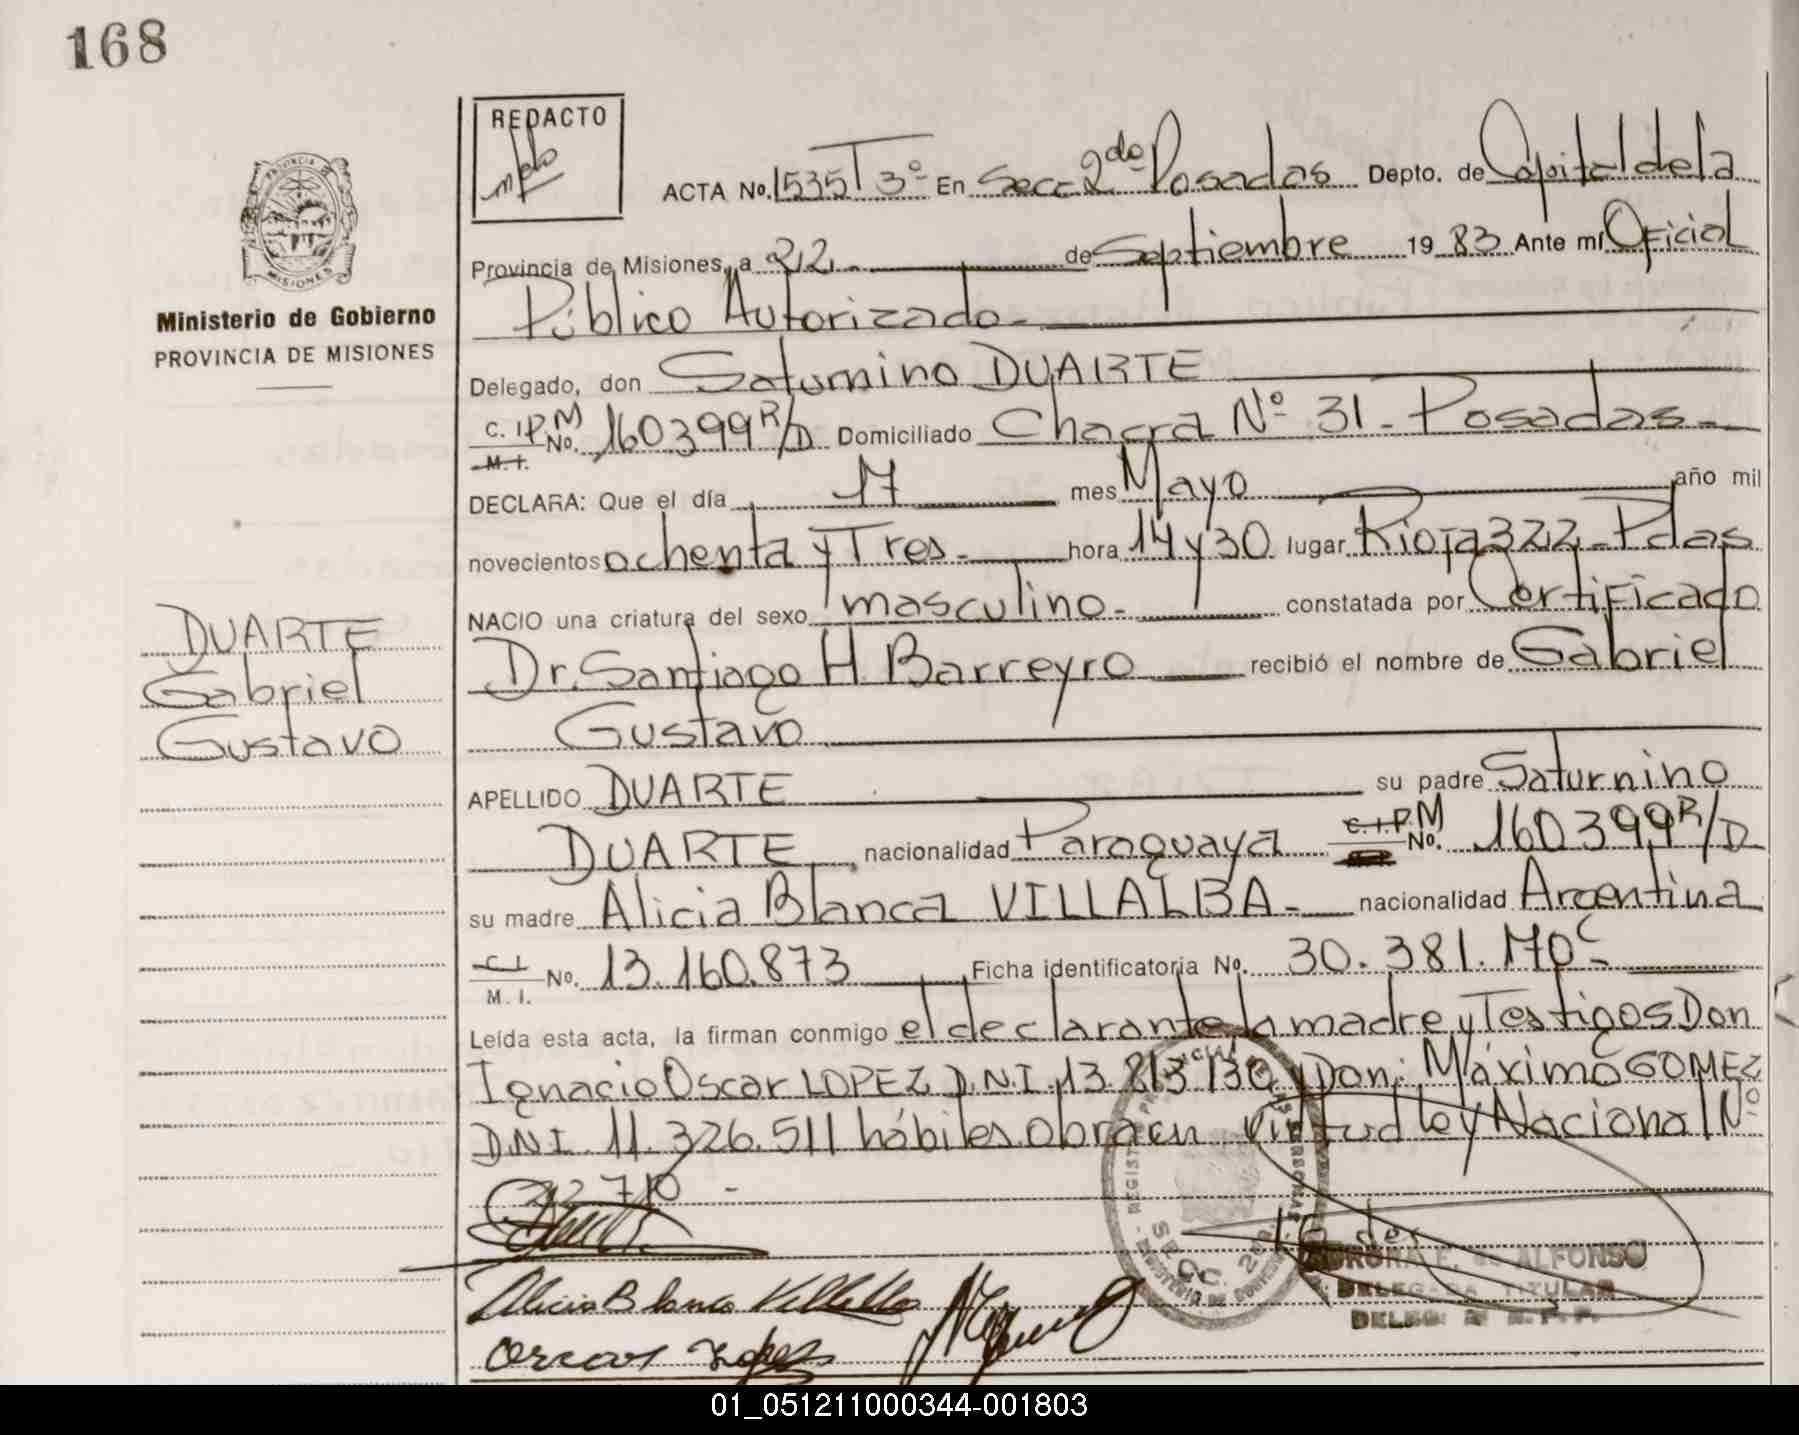 168
REDACTO
ACTA No. 1535 T 3º En Secc 2da Posadas Depto. de Capital de la
Provincia de Misiones, a 22 de Septiembre 19 83 Ante mí Oficial
Público Autorizado
Ministerio de Gobierno
PROVINCIA DE MISIONES
Delegado, don Saturnino DUARTE
C. I. P.M No. 160399 R/D Domiciliado Chacra Nº 31 - Posadas
M. I.
DECLARA: Que el día 17 mes Mayo año mil
novecientos ochenta y Tres hora 14 y 30 lugar Rioja 322 - Pdas
NACIO una criatura del sexo masculino constatada por Certificado
Dr. Santiago H. Barreyro recibió el nombre de Gabriel
Gustavo
DUARTE
Gabriel
Gustavo
APELLIDO DUARTE su padre Saturnino
DUARTE, nacionalidad Paraguaya C.I. P.M No. 160399 R/D
su madre Alicia Blanca VILLALBA nacionalidad Argentina
C I No. 13.160.873 Ficha identificatoria No. 30.381.170 C
M. I.
Leída esta acta, la firman conmigo el declarante la madre y Testigos Don
Ignacio Oscar LOPEZ D.N.I. 13.813.130 y Don: Máximo GOMEZ
D.N.I. 11.326.511 hábiles obra en virtud ley Nacional Nº
22710 -
Alicia Blanca Villalba
Oscar Lopez
SECC. 2da
E. de ALFONSO
DELEGADA TITULAR
01_051211000344-001803